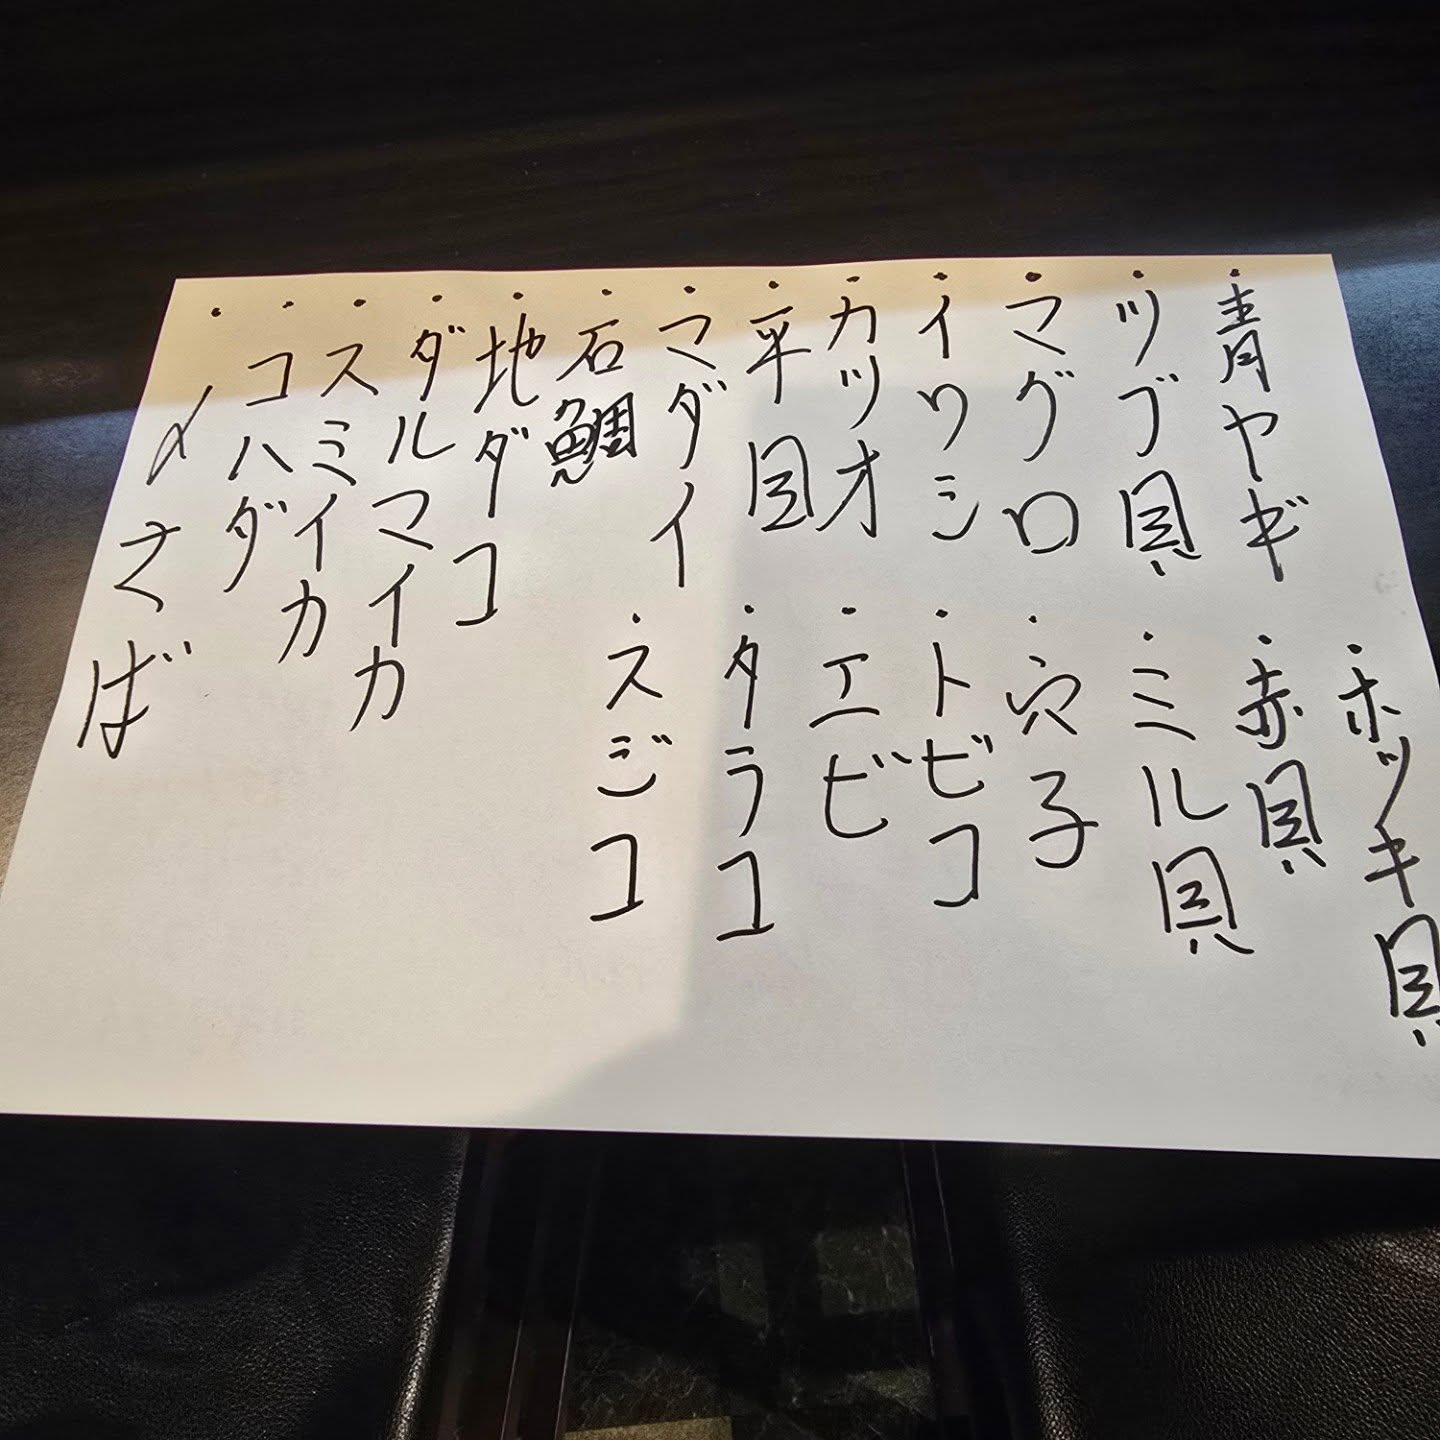 ・青ヤギ
・ツブ貝
・マグロ
・イワシ
・カツオ
・平目
・マダイ
・石鯛
・地ダコ
・ダルマイカ
・スミイカ
・コハダ
・〆さば
・ホッキ貝
・赤貝
・ミル貝
・穴子
・トビコ
・エビ
・タラコ
・スジコ